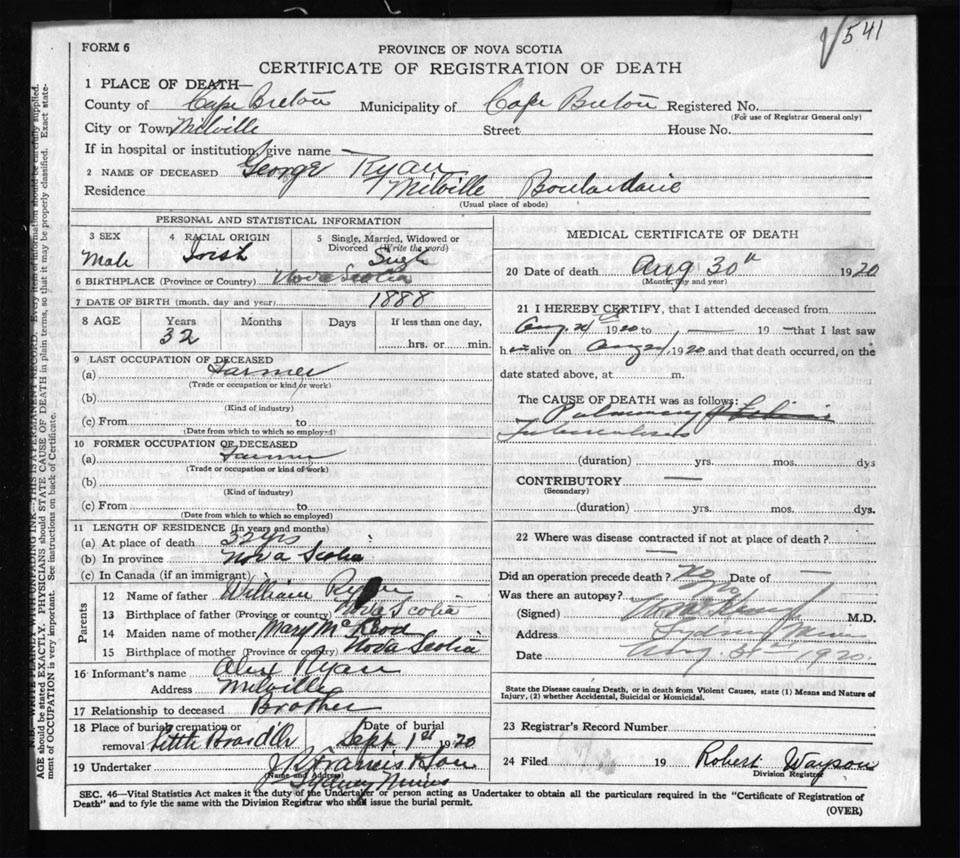 541
FORM 6
PROVINCE OF NOVA SCOTIA
CERTIFICATE OF REGISTRATION OF DEATH
1 PLACE OF DEATH—
County of Cape Breton Municipality of Cape Breton Registered No.
(For use of Registrar General only)
City or Town Milville Street House No.
If in hospital or institution, give name —
2 NAME OF DECEASED George Ryan
Residence Milville Boulardarie
(Usual place of abode)
PERSONAL AND STATISTICAL INFORMATION
3 SEX 4 RACIAL ORIGIN 5 Single, Married, Widowed or Divorced (Write the word)
Male Irish Single
6 BIRTHPLACE (Province or Country) Nova Scotia
7 DATE OF BIRTH (month, day and year) 1888
8 AGE Years Months Days If less than one day,
32 hrs. or min.
9 LAST OCCUPATION OF DECEASED
(a) Farmer
(Trade or occupation or kind of work)
(b)
(Kind of industry)
(c) From to
(Date from which to which so employed)
10 FORMER OCCUPATION OF DECEASED
(a) Farmer
(Trade or occupation or kind of work)
(b)
(Kind of industry)
(c) From to
(Date from which to which so employed)
11 LENGTH OF RESIDENCE (In years and months)
(a) At place of death 32 yrs
(b) In province Nova Scotia
(c) In Canada (if an immigrant)
Parents
12 Name of father William Ryan
13 Birthplace of father (Province or country) Nova Scotia
14 Maiden name of mother Mary
15 Birthplace of mother (Province or country) Nova Scotia
16 Informant's name Ryan
Address Milville
17 Relationship to deceased Brother
18 Place of burial, cremation or removal Date of burial
Sept 1st 1920
19 Undertaker J Francis & Son
(Name and Address)
Sydney Mines
MEDICAL CERTIFICATE OF DEATH
20 Date of death Aug 30th 1920
(Month, day and year)
21 I HEREBY CERTIFY, that I attended deceased from
Aug. 1920 to — 19 — that I last saw
h alive on Aug , 1920 and that death occurred, on the
date stated above, at m.
The CAUSE OF DEATH was as follows:
Pulmonary
Tuberculosis
(duration) yrs. mos. dys
CONTRIBUTORY —
(Secondary)
(duration) yrs. mos. dys.
22 Where was disease contracted if not at place of death?
—
Did an operation precede death? No Date of —
Was there an autopsy? No
(Signed) M.D.
Address Sydney Mines
Date Aug. 31st 1920.
State the Disease causing Death, or in death from Violent Causes, state (1) Means and Nature of
Injury, (2) whether Accidental, Suicidal or Homicidal.
23 Registrar's Record Number
24 Filed 19 Robert
Division Registrar
SEC. 46—Vital Statistics Act makes it the duty of the Undertaker or person acting as Undertaker to obtain all the particulars required in the "Certificate of Registration of
Death" and to fyle the same with the Division Registrar who shall issue the burial permit.
(OVER)
N.B. WRITE PLAINLY WITH UNFADING INK—THIS IS A PERMANENT RECORD. Every item of information should be carefully supplied.
AGE should be stated EXACTLY. PHYSICIANS should STATE CAUSE OF DEATH in plain terms, so that it may be properly classified. Exact state-
ment of OCCUPATION is very important. See instructions on back of Certificate.